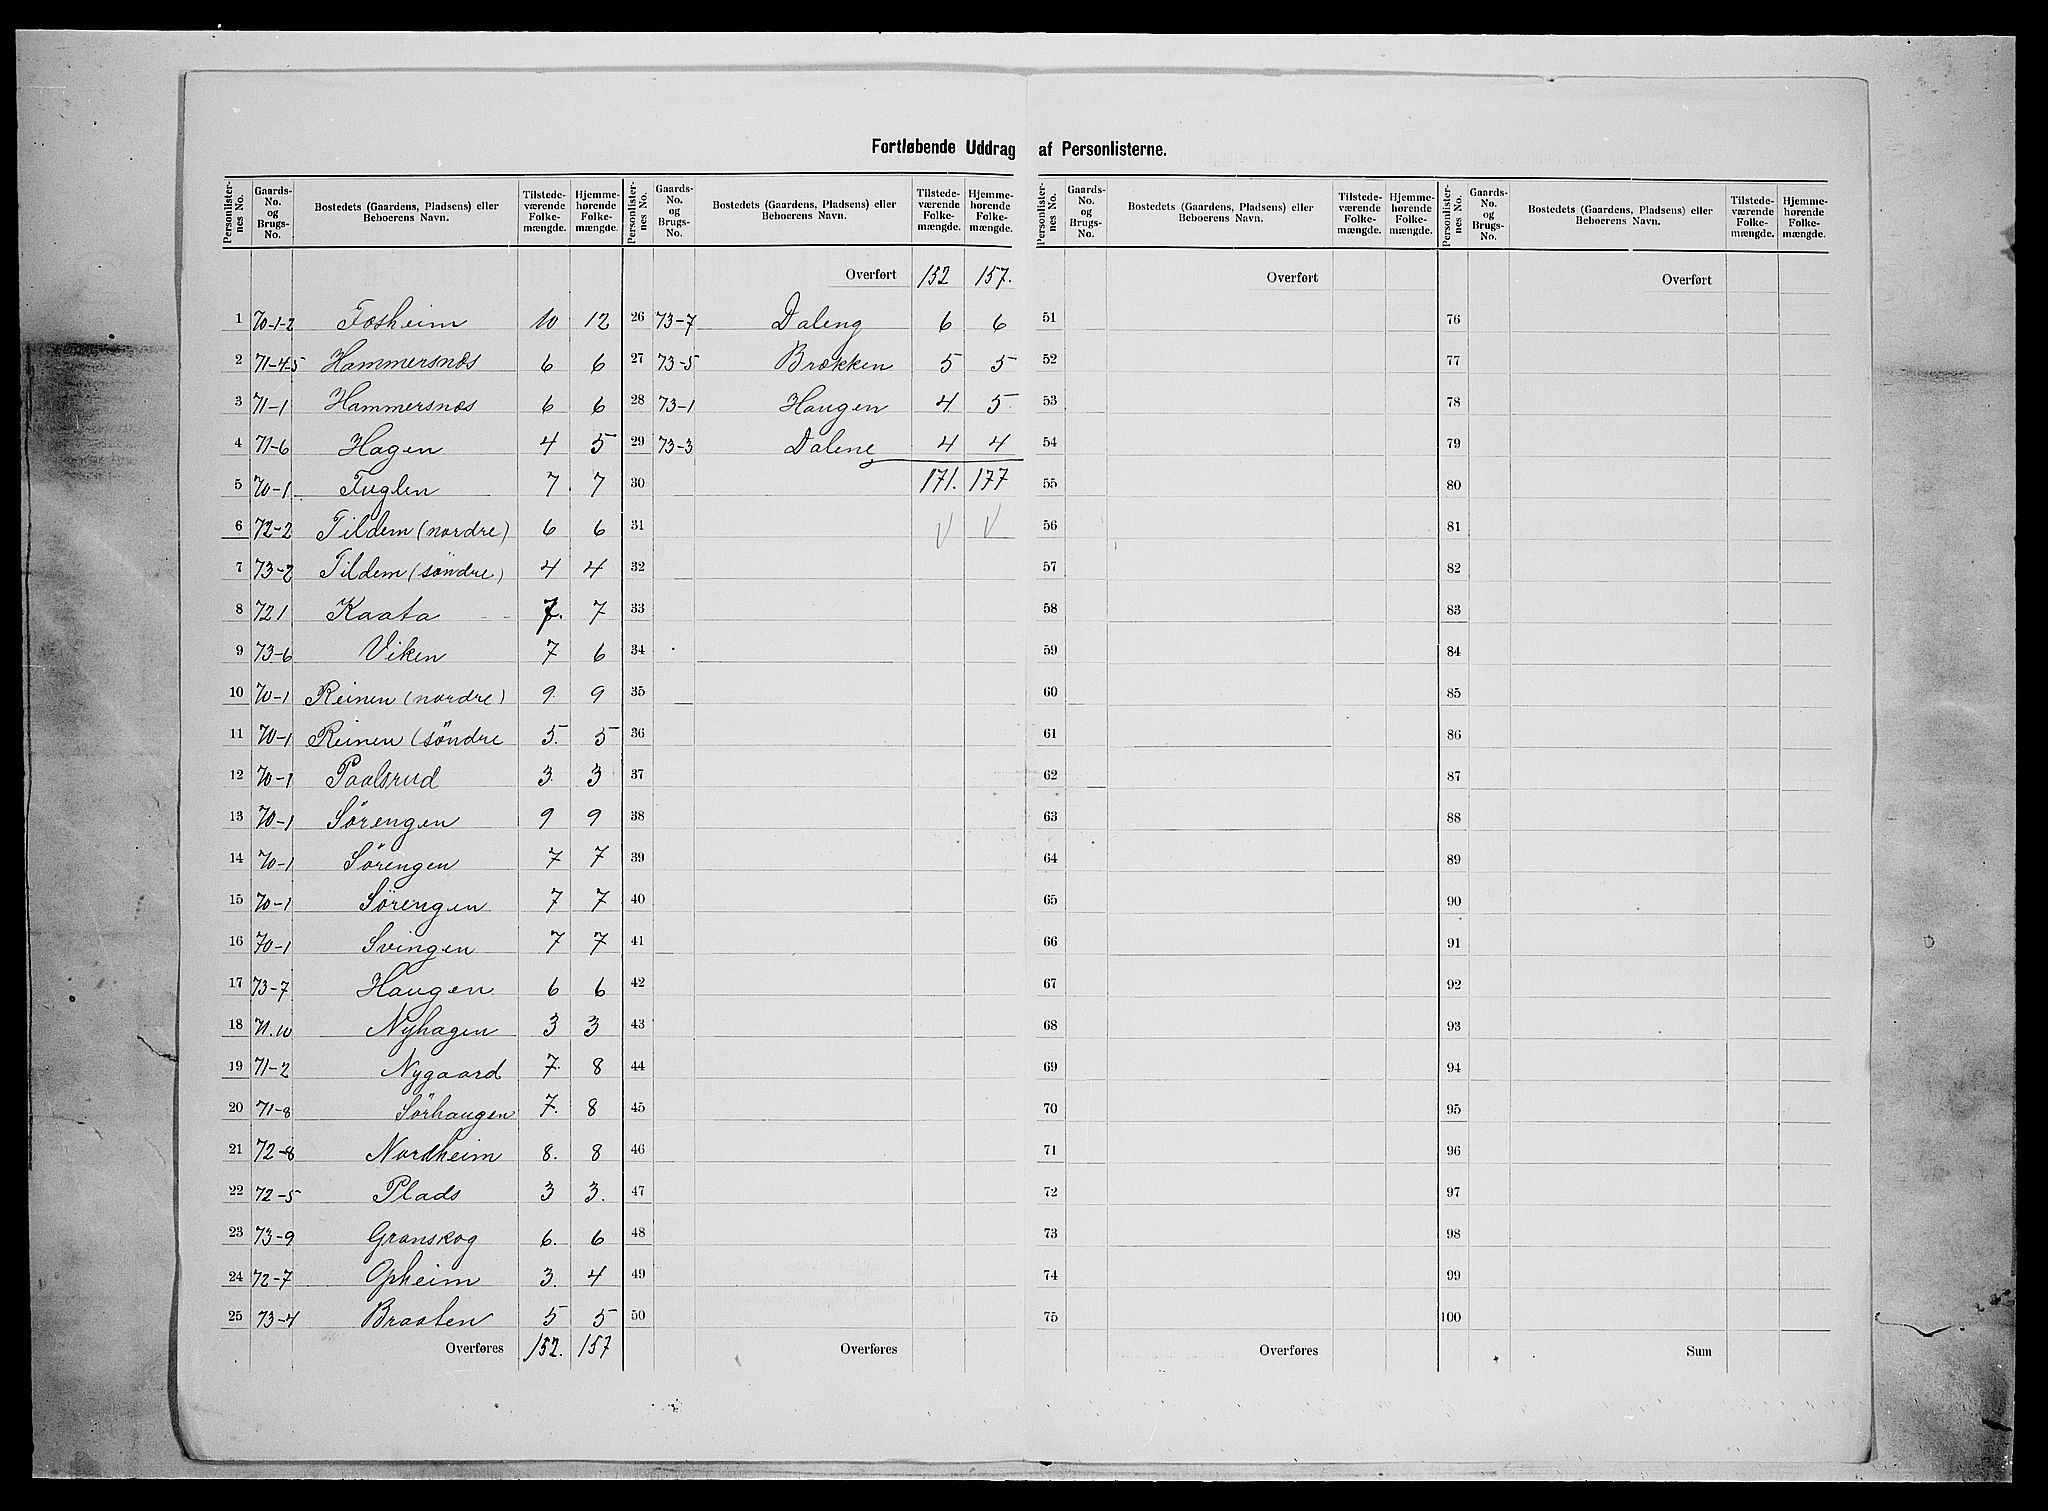 Fortløbende Uddrag af Personlisterne.
Personlister-nes No. | Gaards-No. og Brugs-No. | Bostedets (Gaardens, Pladsens) eller Beboerens Navn. | Tilstede-værende Folke-mængde. | Hjemme-hørende Folke-mængde.
1 70-1-2 Fosheim 10 12
2 71-4-5 Hammersnæs 6 6
3 71-1 Hammersnæs 6 6
4 71-6 Hagen 4 5
5 70-1 Fuglen 7. 7
6 72-2 Tildem (nordre) 6 6
7 73-2 Tildem (söndre) 4 4
8 72 1 Kaata 7. 7
9 73-6 Viken 7 6
10 70-1 Reinen (nordre) 9. 9
11 70-1 Reinen (söndre 5. 5
12 70-1 Paalsrud 3. 3
13 70-1 Sörengen 9 9
14 70-1 Sörengen 7 7
15 70-1 Sörengen 7 7
16 70-1 Svingen 7 7
17 73-7 Haugen 6 6
18 71.10 Nyhagen 3 3
19 71-2 Nygaard 7. 8
20 71-8 Sörhaugen 7. 8
21 72-8 Nordheim 8. 8
22 72-5 Plads 3 3.
23 73-9 Granskog 6. 6
24 72-7 Opheim 3. 4
25 73-4 Braaten 5 5
Overføres 152. 157
Personlister-nes No. | Gaards-No. og Brugs-No. | Bostedets (Gaardens, Pladsens) eller Beboerens Navn. | Tilstede-værende Folke-mængde. | Hjemme-hørende Folke-mængde.
Overført 152 157.
26 73-7 Daleng 6 6
27 73-5 Brækken 5 5
28 73-1 Haugen 4 5.
29 73-3 Dalene 4 4
30 171. 177
31 V V
32
33
34
35
36
37
38
39
40
41
42
43
44
45
46
47
48
49
50
Overføres
Personlister-nes No. | Gaards-No. og Brugs-No. | Bostedets (Gaardens, Pladsens) eller Beboerens Navn. | Tilstede-værende Folke-mængde. | Hjemme-hørende Folke-mængde.
Overført
51
52
53
54
55
56
57
58
59
60
61
62
63
64
65
66
67
68
69
70
71
72
73
74
75
Overføres
Personlister-nes No. | Gaards-No. og Brugs-No. | Bostedets (Gaardens, Pladsens) eller Beboerens Navn. | Tilstede-værende Folke-mængde. | Hjemme-hørende Folke-mængde.
Overført
76
77
78
79
80
81
82
83
84
85
86
87
88
89
90
91
92
93
94
95
96
97
98
99
100
Sum